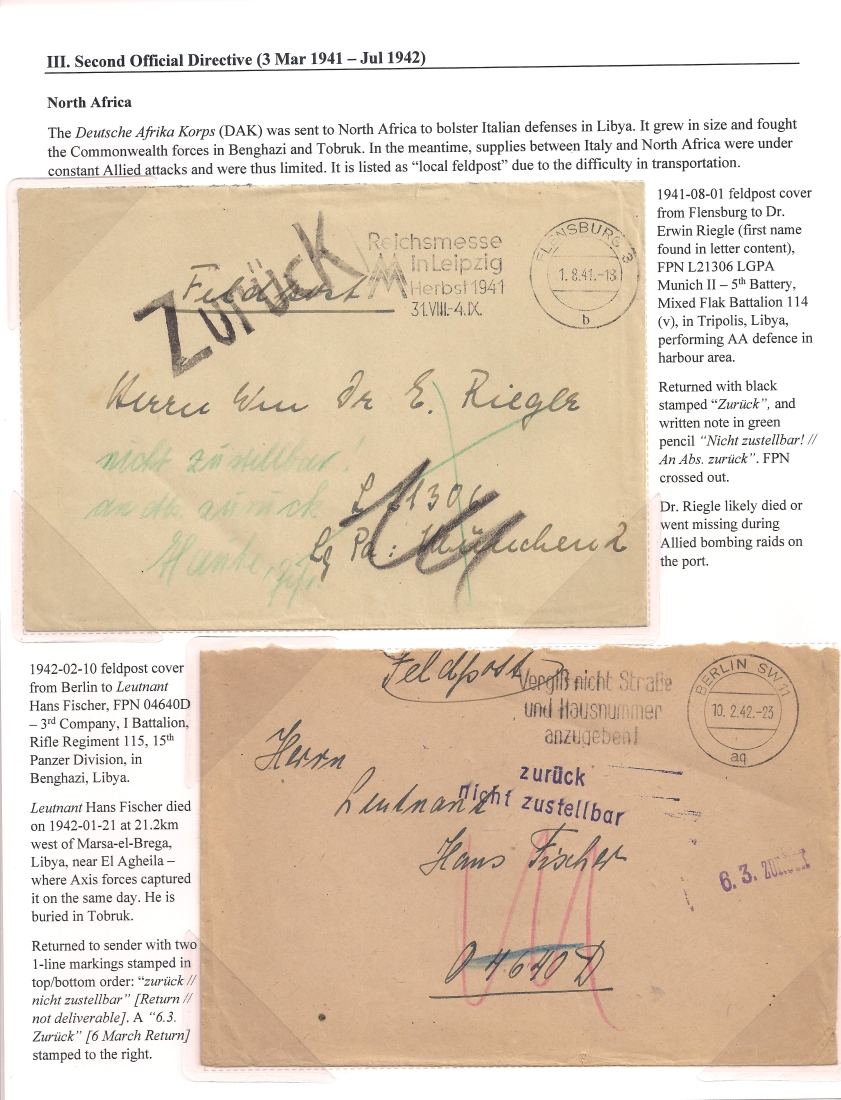 III. Second Official Directive (3 Mar 1941 – Jul 1942)
North Africa
The Deutsche Afrika Korps (DAK) was sent to North Africa to bolster Italian defenses in Libya. It grew in size and fought
the Commonwealth forces in Benghazi and Tobruk. In the meantime, supplies between Italy and North Africa were under
constant Allied attacks and were thus limited. It is listed as “local feldpost” due to the difficulty in transportation.
Zurück
Feldpost
Reichsmesse
in Leipzig
Herbst 1941
31.VIII.-4.IX.
FLENSBURG 3
1.8.41.-18
b
Herrn Dr E. Riegle
nicht zustellbar!
an Abs. zurück
L 21306
Lg Pa: München 2
1941-08-01 feldpost cover
from Flensburg to Dr.
Erwin Riegle (first name
found in letter content),
FPN L21306 LGPA
Munich II – 5th Battery,
Mixed Flak Battalion 114
(v), in Tripolis, Libya,
performing AA defence in
harbour area.
Returned with black
stamped “Zurück”, and
written note in green
pencil “Nicht zustellbar! //
An Abs. zurück”. FPN
crossed out.
Dr. Riegle likely died or
went missing during
Allied bombing raids on
the port.
1942-02-10 feldpost cover
from Berlin to Leutnant
Hans Fischer, FPN 04640D
– 3rd Company, I Battalion,
Rifle Regiment 115, 15th
Panzer Division, in
Benghazi, Libya.
Leutnant Hans Fischer died
on 1942-01-21 at 21.2km
west of Marsa-el-Brega,
Libya, near El Agheila –
where Axis forces captured
it on the same day. He is
buried in Tobruk.
Returned to sender with two
1-line markings stamped in
top/bottom order: “zurück //
nicht zustellbar” [Return //
not deliverable]. A “6.3.
Zurück” [6 March Return]
stamped to the right.
Feldpost
Vergiß nicht Straße
und Hausnummer
anzugeben!
BERLIN SW 11
10. 2.42.-23
aq
Herrn
Leutnant
zurück
nicht zustellbar
Hans Fischer
6. 3. Zurück
04640D